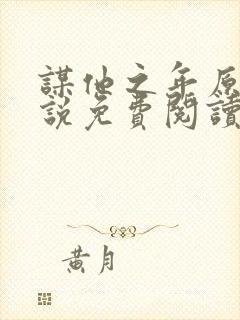 謀他之年原
說免費閱讀
黃月